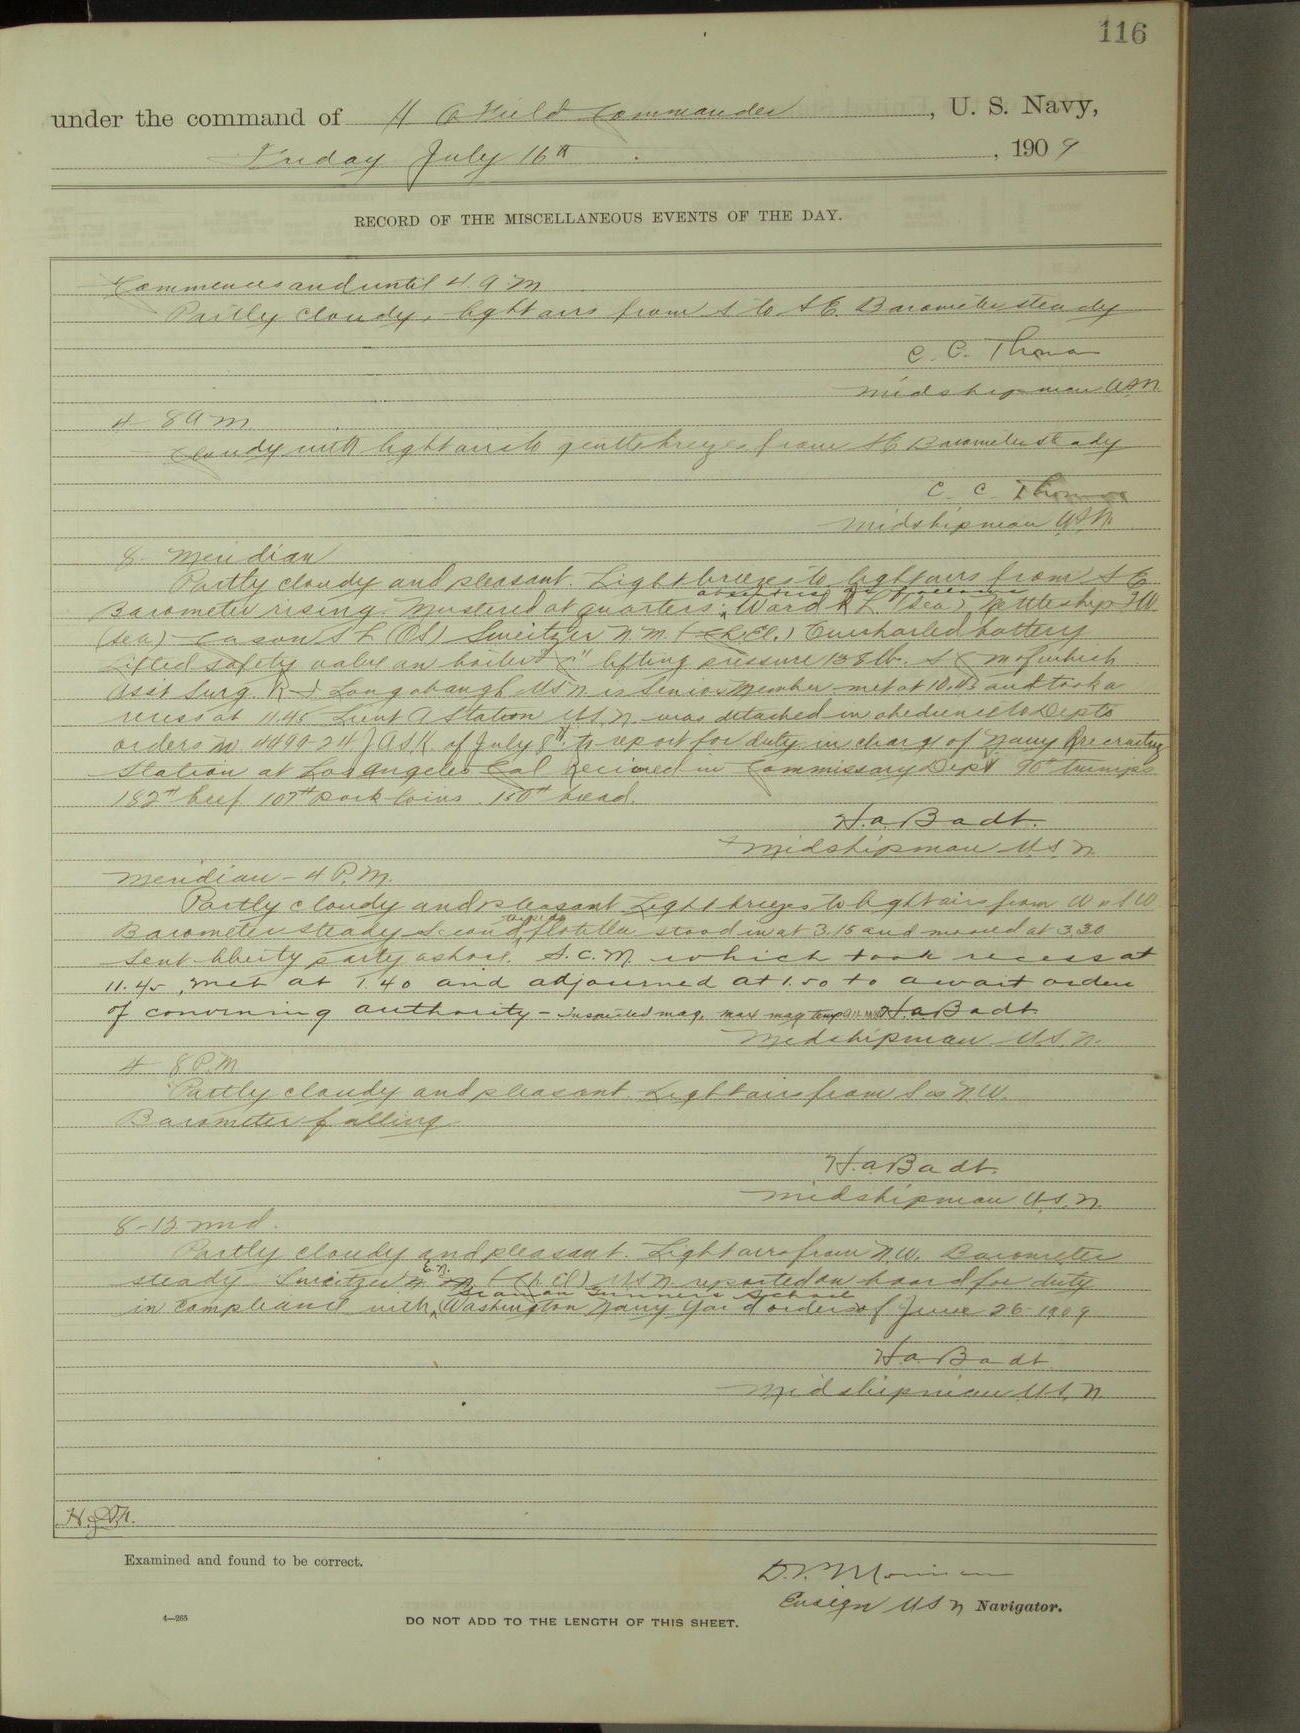 116
under the command of H A Field Commander, U. S. Navy,
Friday July 16th, 1909
RECORD OF THE MISCELLANEOUS EVENTS OF THE DAY.
Commences and until 4 A M
Partly cloudy, light airs from S to SE. Barometer steady
C. C. Thomas
Midshipman USN.
4 - 8 A M
Cloudy with light airs to gentle breezes from SE Barometer steady
C. C. Thomas
Midshipman U.S.N.
8 - Meridian
Partly cloudy and pleasant. Light breezes to light airs from SE
absentees as follows
Barometer rising. Mustered at quarters; Ward R L (Sea) Nettleship F W
(Sea) Cason S L (OS) Sweitzer N. M. (Ch. El.) Overhauled battery
Lifted safety valve on boiler "C" lifting pressure 138 lb. S C M of which
Asst Surg. R. I. Longabaugh USN is Senior Member met at 10.45 and took a
recess at 11.45 Lieut A Staton U.S.N. was detached in obedience to Dept's
orders No. 4499-24 of July 8th to report for duty in charge of Navy Recruiting
Station at Los Angeles Cal Received in Commissary Dept 90# turnips
182# beef 107# pork loins 150# bread.
H. A. Badt.
Midshipman U.S.N
Meridian - 4 P.M.
Partly cloudy and pleasant Light breezes to light airs from W & SW
torpedo
Barometer steady Second flotilla stood in at 3.15 and moored at 3.30
Sent liberty party ashore. S. C. M. which took recess at
11.45, met at 1.40 and adjourned at 1.50 to await orders
of convening authority - Inspected mag. max mag temp H. A. Badt
Midshipman U.S.N.
4 - 8 P.M
Partly cloudy and pleasant. Light airs from S to N.W.
Barometer falling
H. A. Badt.
Midshipman U.S.N.
8 - 12 mid.
Partly cloudy and pleasant. Light airs from N.W. Barometer
E. N.
steady Sweitzer (Ch. El) USN reported on board for duty
Seaman Gunner's School
in compliance with Washington Navy Yard orders of June 26 1909
H. A. Badt
Midshipman U.S.N.
Examined and found to be correct.
Ensign USN Navigator.
4—265
DO NOT ADD TO THE LENGTH OF THIS SHEET.